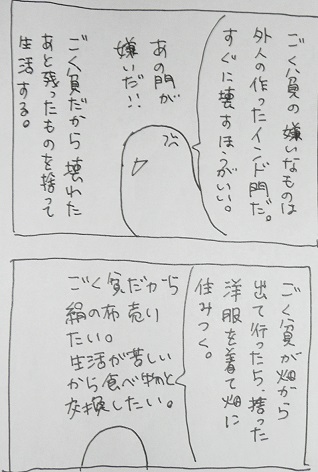 ごく貧の嫌いなものは
外人の作ったインド門だ。
すぐに壊すほうがいい。
あの門が
嫌いだ!!
ごく貧だから壊れた
あと残ったものを捨って
生活する。
ごく貧が畑から
出て行ったら、捨った
洋服を着て畑に
住みつく。
ごく貧だから
絹の布売り
たい。
生活が苦しい
から食べ物と
交換したい。